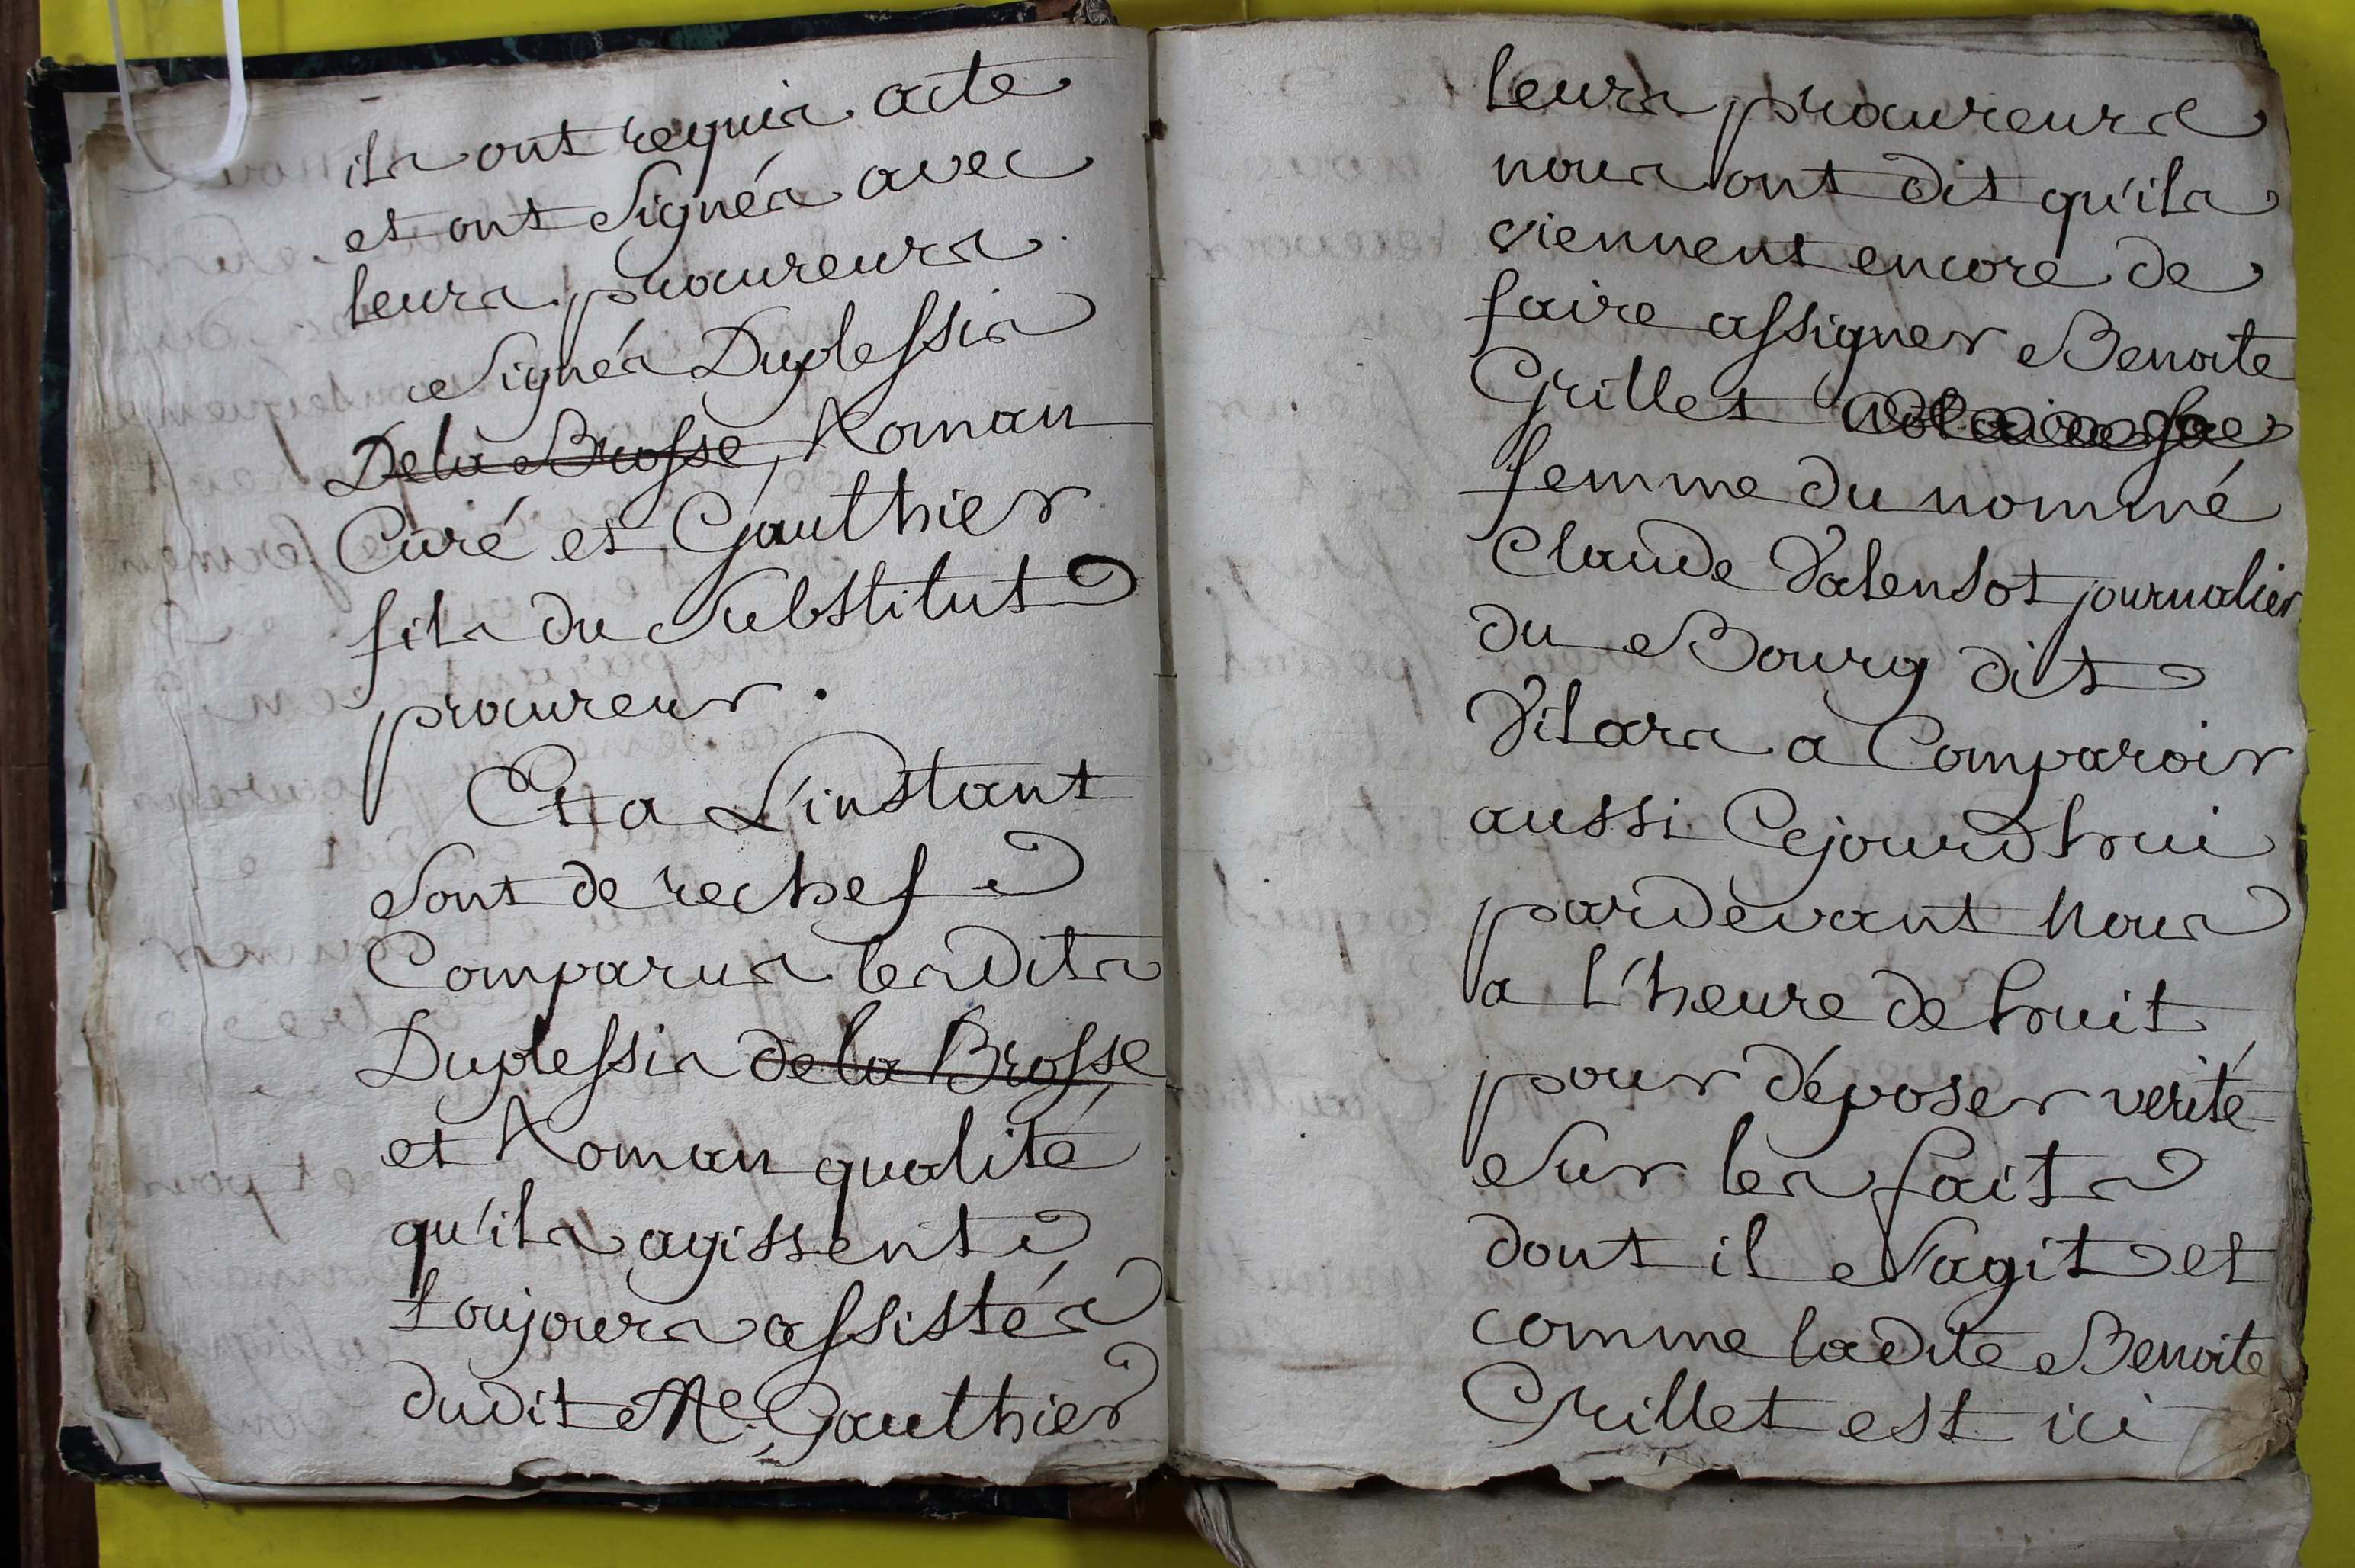 ils ont requis acte
et ont signés avec
leurs procureurs
signés Duplessis
De la Brosse, Roman
Curé et Gauthier
fils du substitut
procureur.
Et a L'instant
sont de rechef
Comparus lesdits
Duplessis de la Brosse
et Roman qualité
qu'ils agissent
toujours assistés
dudit Me. Gauthier
leurs procureurs
nous ont dit qu'ils
viennent encore de
faire assigner Benoite
Grillet
femme du nommé
Claude Valensot journalier
du Bourg dit
Vilars a Comparoir
aussi Cejourdhui
pardevant nous
a l'heure de huit
pour déposer verité
sur les faits
dont il s'agit et
comme ladite Benoite
Grillet est ici